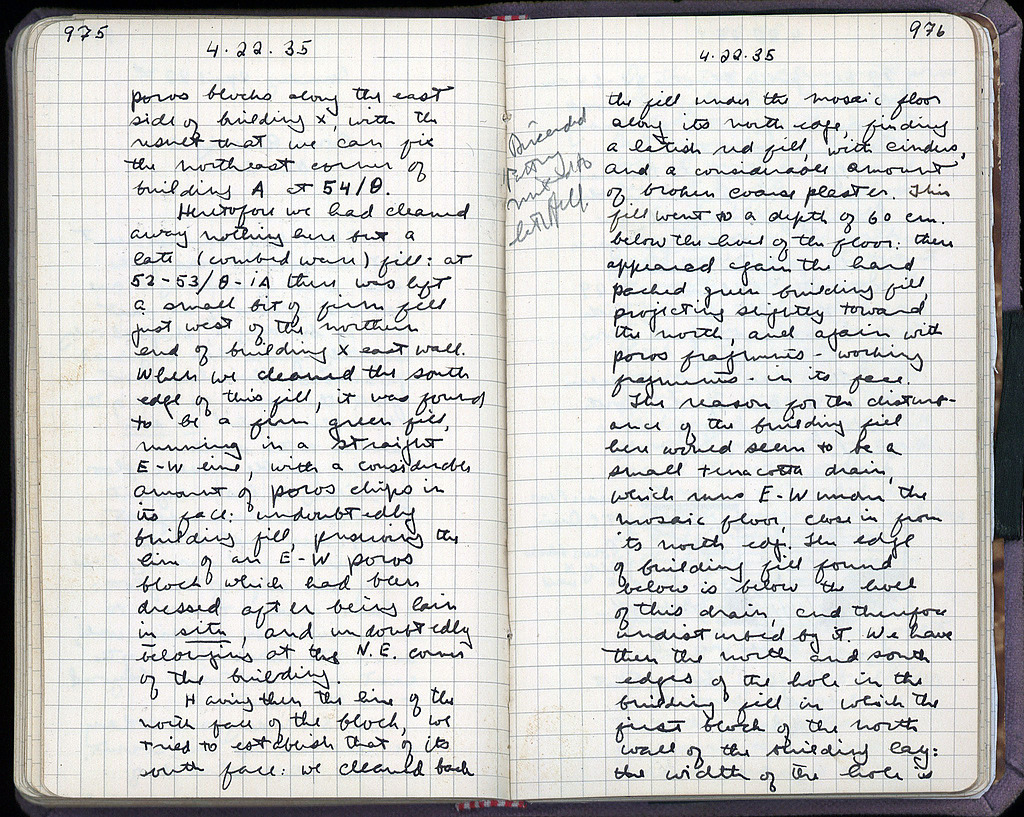 975
4.22.35
poros blocks along the east
side of building X, with the
result that we can fix
the northeast corner of
building A at 54/Θ.
Heretofore we had cleaned
away nothing here but a
late (combed ware) fill: at
52-53/Θ-ΙΑ there was left
a small bit of firm fill
just west of the northern
end of building X east wall.
When we cleaned the south
edge of this fill, it was found
to be a firm green fill,
running in a straight
E-W line, with a considerable
amount of poros chips in
its face: undoubtedly
building fill, preserving the
line of an E-W poros
block which had been
dressed after being lain
in situ, and undoubtedly
belonging at the N.E. corner
of the building.
Having then the line of the
north face of the block, we
tried to establish that of its
south face: we cleaned back
976
4.22.35
Discarded
Pottery
mixed to
late fill
the fill under the mosaic floor
along its north edge, finding
a latish red fill, with cinders,
and a considerable amount
of broken coarse plaster. This
fill went to a depth of 60 cm.
below the level of the floor: then
appeared again the hard
packed green building fill,
projecting slightly toward
the north, and again with
poros fragments - working
fragments - in its face.
The reason for the disturb-
ance of the building fill
here would seem to be a
small terracotta drain,
which runs E-W under the
mosaic floor, close in from
its north edge. The edge
of building fill found
below is below the level
of this drain, and therefore
undisturbed by it. We have
then the north and south
edges of the hole in the
building fill in which the
first block of the north
wall of the building lay:
the width of the hole is